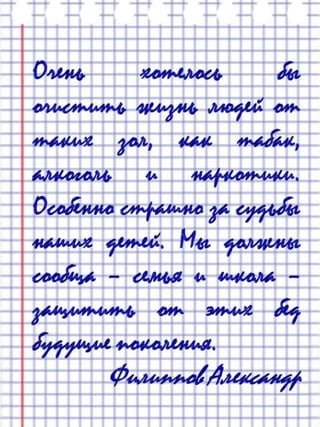 Очень хотелось бы
очистить жизнь людей от
таких зол, как табак,
алкоголь и наркотики.
Особенно страшно за судьбы
наших детей. Мы должны
сообща – семья и школа –
защитить от этих бед
будущие поколения.
Филиппов Александр